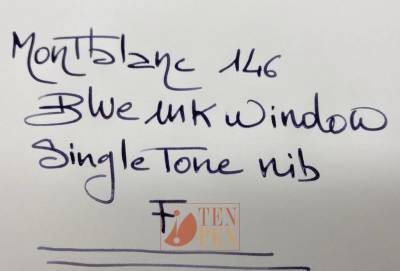 Montblanc 146
Blue ink window
Single Tone nib
F
TEN
PEN